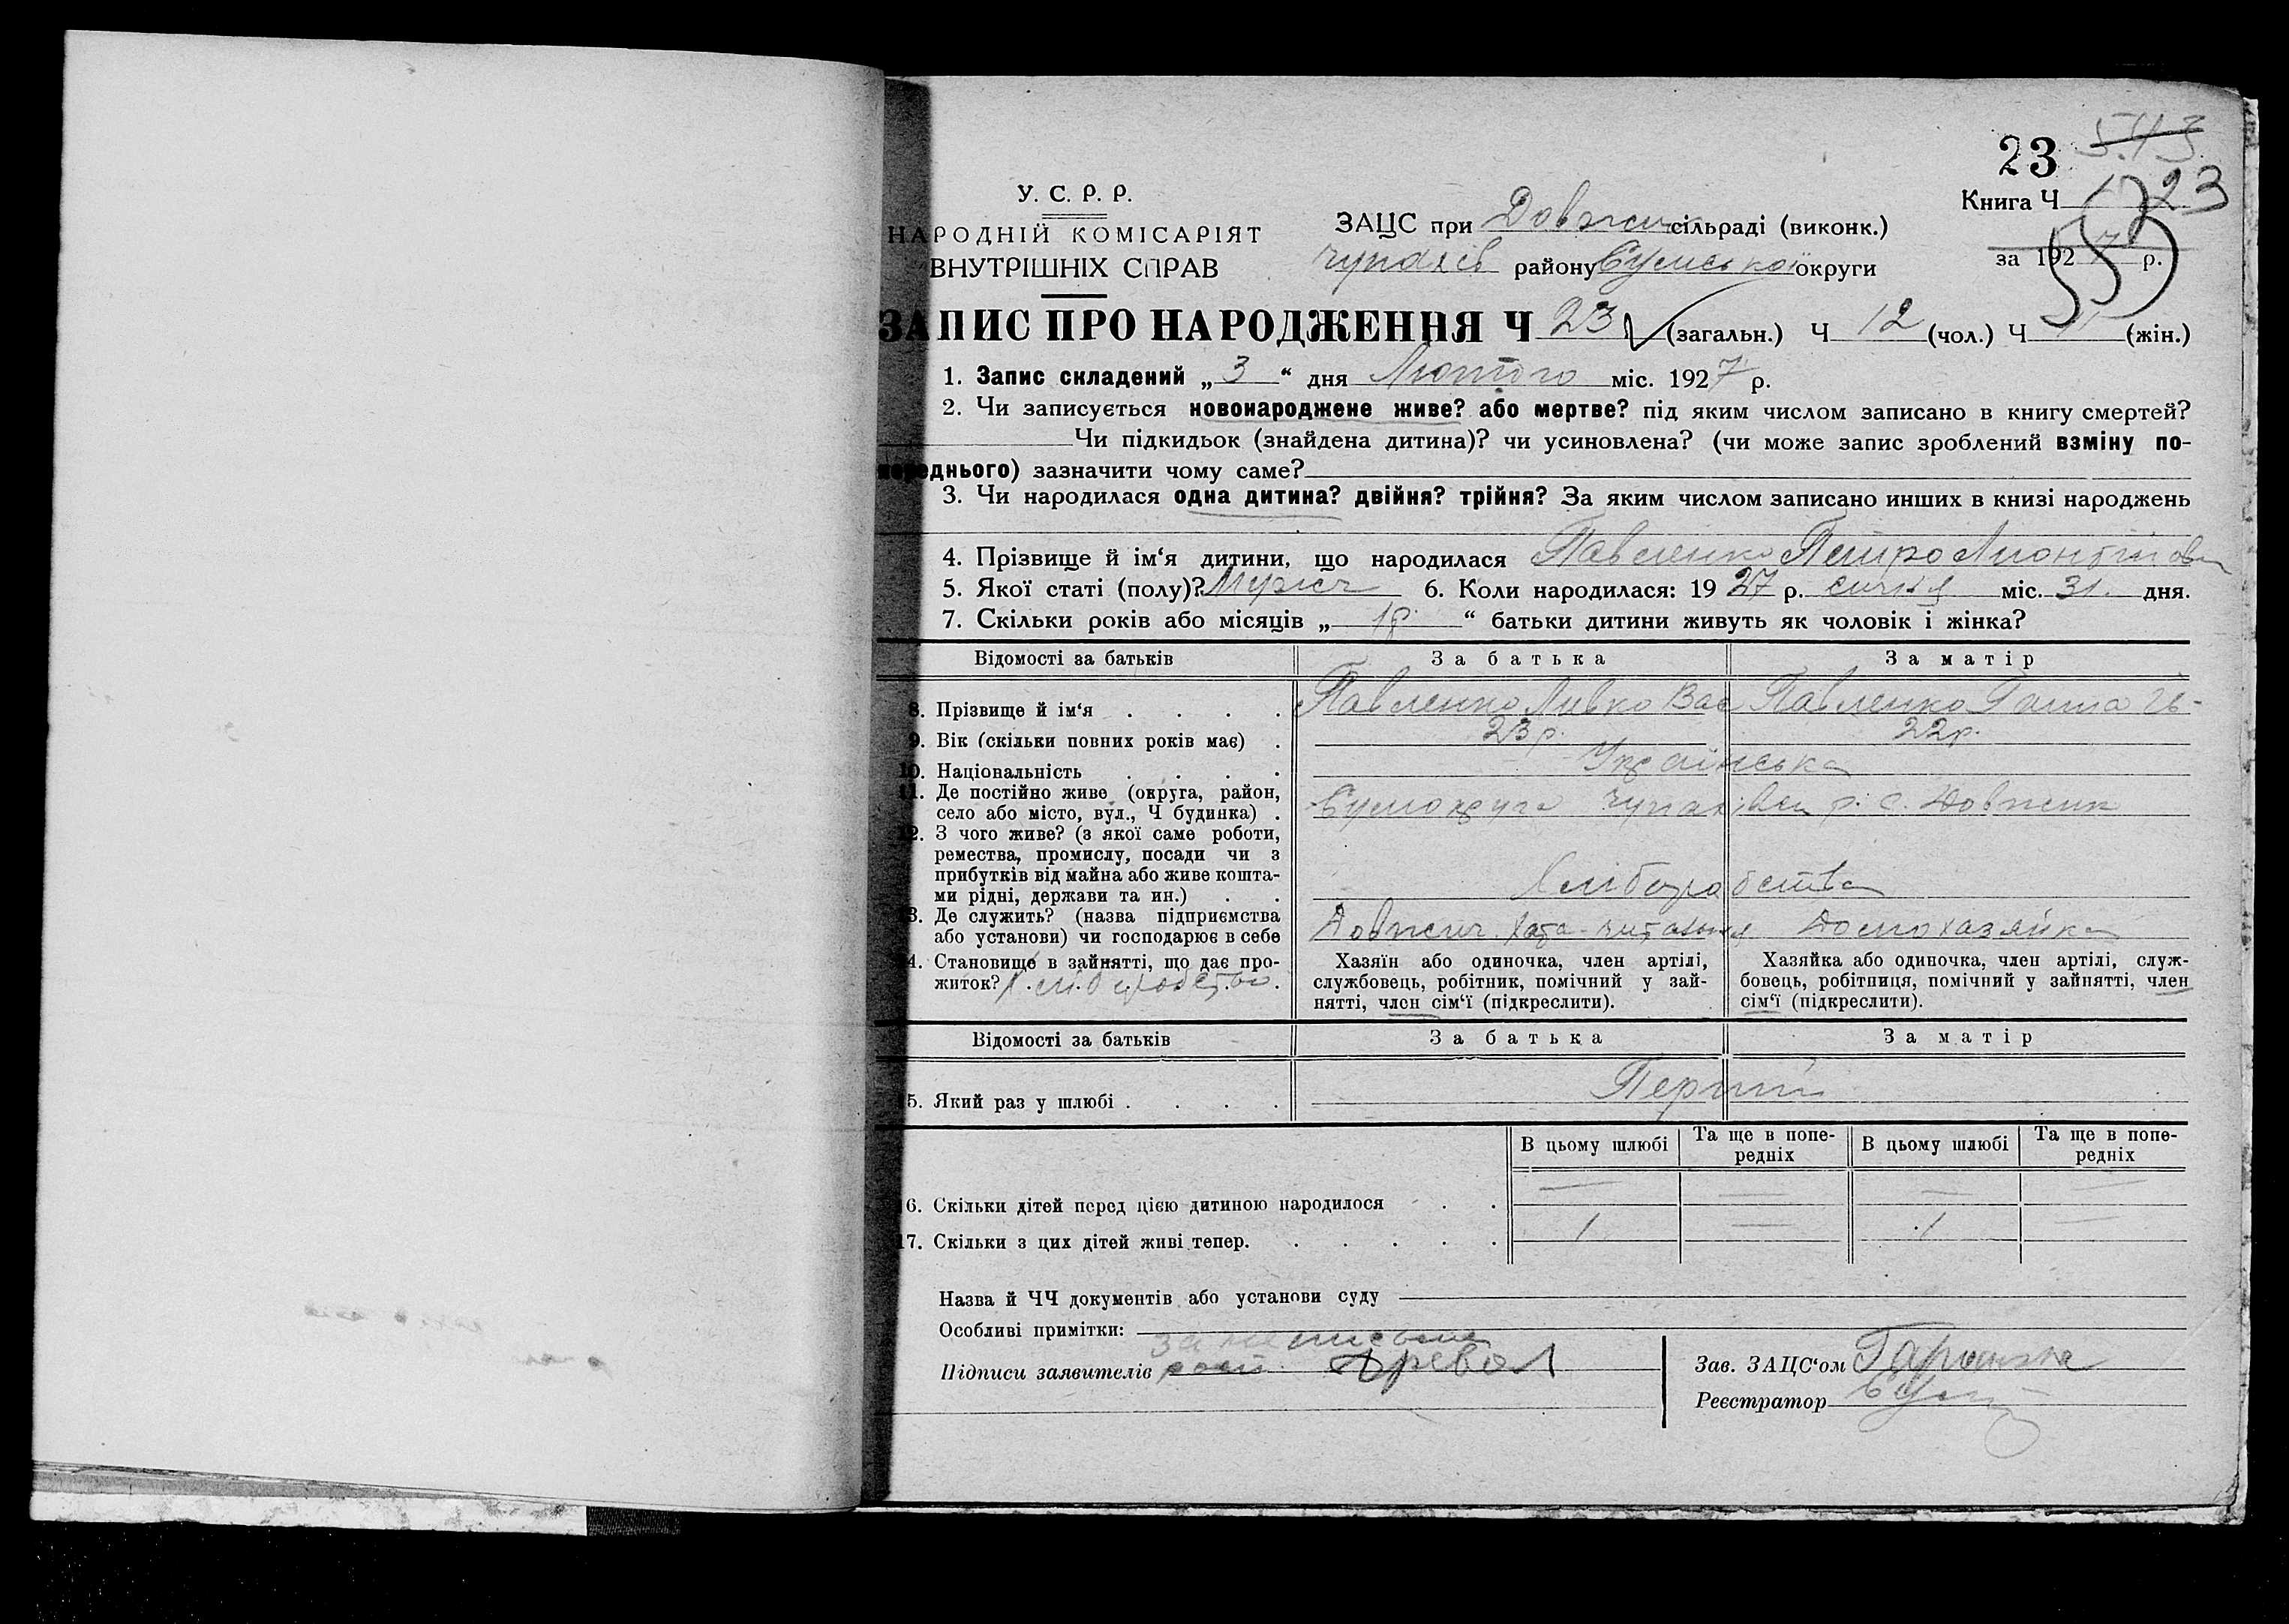 23 543
Книга Ч 23
за 1927 р.
У. С. Р. Р.
НАРОДНІЙ КОМІСАРІЯТ
ВНУТРІШНІХ СПРАВ
ЗАЦС при Довжич сільраді (виконк.)
Чупахів району Сумської округи
ЗАПИС ПРО НАРОДЖЕННЯ Ч 23 (загальн.) Ч 12 (чол.) Ч (жін.)
1. Запис складений „3“ дня Лютого міс. 1927 р.
2. Чи записується новонароджене живе? або мертве? під яким числом записано в книгу смертей?
Чи підкидьок (знайдена дитина)? чи усиновлена? (чи може запис зроблений взміну по-
переднього) зазначити чому саме?
3. Чи народилася одна дитина? двійня? трійня? За яким числом записано инших в книзі народжень
4. Прізвище й ім‘я дитини, що народилася Павленко Петро
5. Якої статі (полу)? Мужск 6. Коли народилася: 1927 р. січня міс. 31. дня.
7. Скільки років або місяців „ “ батьки дитини живуть як чоловік і жінка?
Відомості за батьків За батька За матір
8. Прізвище й ім‘я Павленко Левко Вас Павленко Ганна
9. Вік (скільки повних років має) 23 р. 22 р.
10. Національність Українська
11. Де постійно живе (округа, район,
село або місто, вул., Ч будинка) Сумокруга р. с. Довжик
12. З чого живе? (з якої саме роботи,
ремества, промислу, посади чи з
прибутків від майна або живе кошта-
ми рідні, держави та ин.) Хліборобства
13. Де служить? (назва підприємства
або установи) чи господарює в себе Довжич. хата-читальня Домохазяйка
14. Становище в зайнятті, що дає про-
житок? Хліборобство
Хазяїн або одиночка, член артілі,
службовець, робітник, помічний у зай-
нятті, член сім‘ї (підкреслити).
Хазяйка або одиночка, член артілі, служ-
бовець, робітниця, помічний у зайнятті, член
сім‘ї (підкреслити).
Відомості за батьків За батька За матір
15. Який раз у шлюбі Перший
В цьому шлюбі Та ще в попе-
редніх В цьому шлюбі Та ще в попе-
редніх
16. Скільки дітей перед цією дитиною народилося — — — —
17. Скільки з цих дітей живі тепер. 1 — 1 —
Назва й ЧЧ документів або установи суду
Особливі примітки:
Підписи заявителів
Зав. ЗАЦС‘ом
Реєстратор